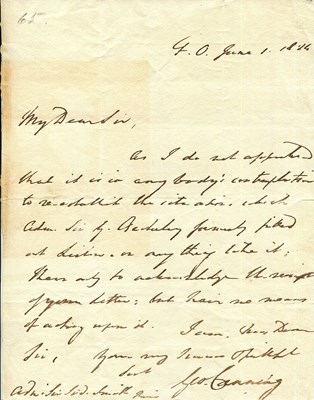 65.
F.O. June 1. 18
My Dear Sir,
As I do not apprehend
that it is in any body's contemplation
to re-establish the situation, which
Adm. Sir G. Berkeley formerly filled
at Lisbon, or any thing like it;
I have only to acknowledge the receipt
of your letter; but have no means
of acting upon it.
I am, Dear
Sir, Your very
Geo. Canning
Adm. Sir Sid. Smith